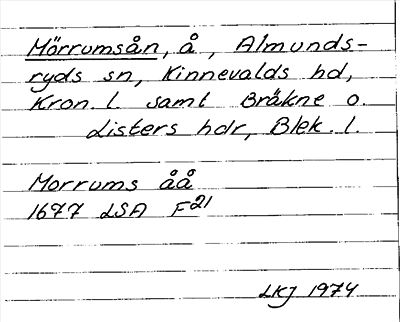 Mörrumsån, å, Almunds-
ryds sn, Kinnevalds hd,
Kron. l. samt Bräkne o.
Listers hdr, Blek. l.
Morrums åå
1677 LSA F21
LKJ 1974